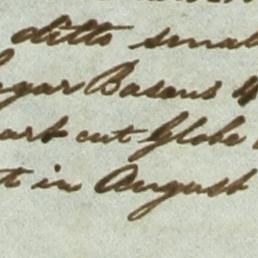 ditto small
Sugar Basons 4
cut Globe
t in August